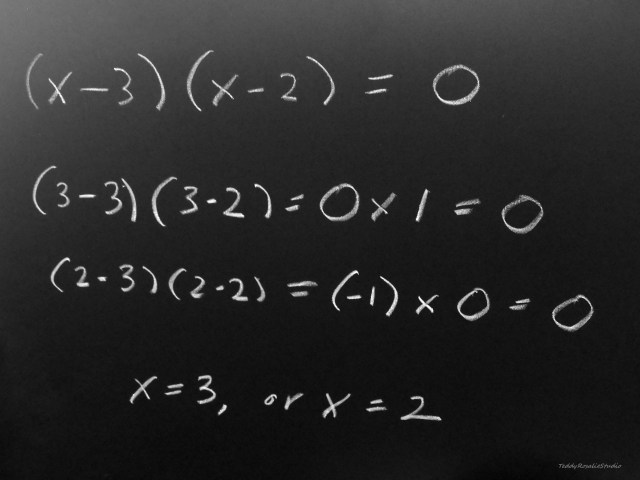 (x-3)(x-2) = 0
(3-3)(3-2) = 0 x 1 = 0
(2-3)(2-2) = (-1) x 0 = 0
x = 3, or x = 2
TeddyRosalieStudio